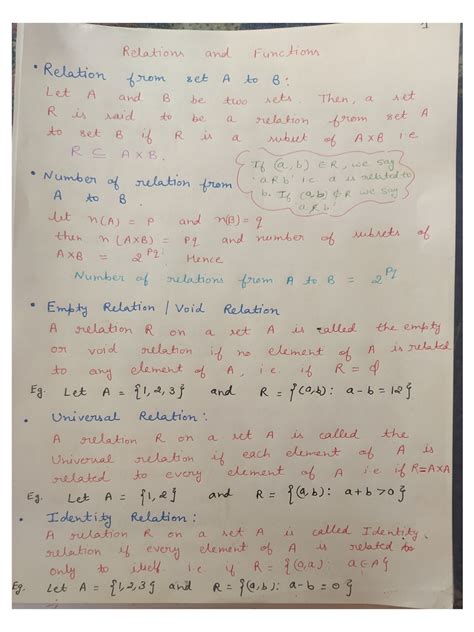 1
Relations and Functions
• Relation from set A to B:
Let A and B be two sets. Then, a set
R is said to be a relation from set A
to set B if R is a subset of A×B i.e
R ⊆ A×B.
If (a, b) ∈ R, we say
'aRb' i.e. a is related to
b. If (a, b) ∉ R we say
aRb
• Number of relation from
A to B.
Let n(A) = p and n(B) = q
then n(A×B) = pq and number of subsets of
A×B = 2^pq. Hence
Number of relations from A to B = 2^pq
• Empty Relation / Void Relation
A relation R on a set A is called the empty
or void relation if no element of A is related
to any element of A, i.e. if R = ϕ
Eg. Let A = {1,2,3} and R = {(a,b): a-b = 12}
• Universal Relation:
A relation R on a set A is called the
Universal relation if each element of A is
related to every element of A i.e if R=A×A
Eg. Let A = {1,2} and R = {(a,b): a+b>0}
• Identity Relation:
A relation R on a set A is called Identity
relation if every element of A is related to
only to itself. i.e. if R = {(a,a): a∈A}
Eg. Let A = {1,2,3} and R = {(a,b): a-b=0}